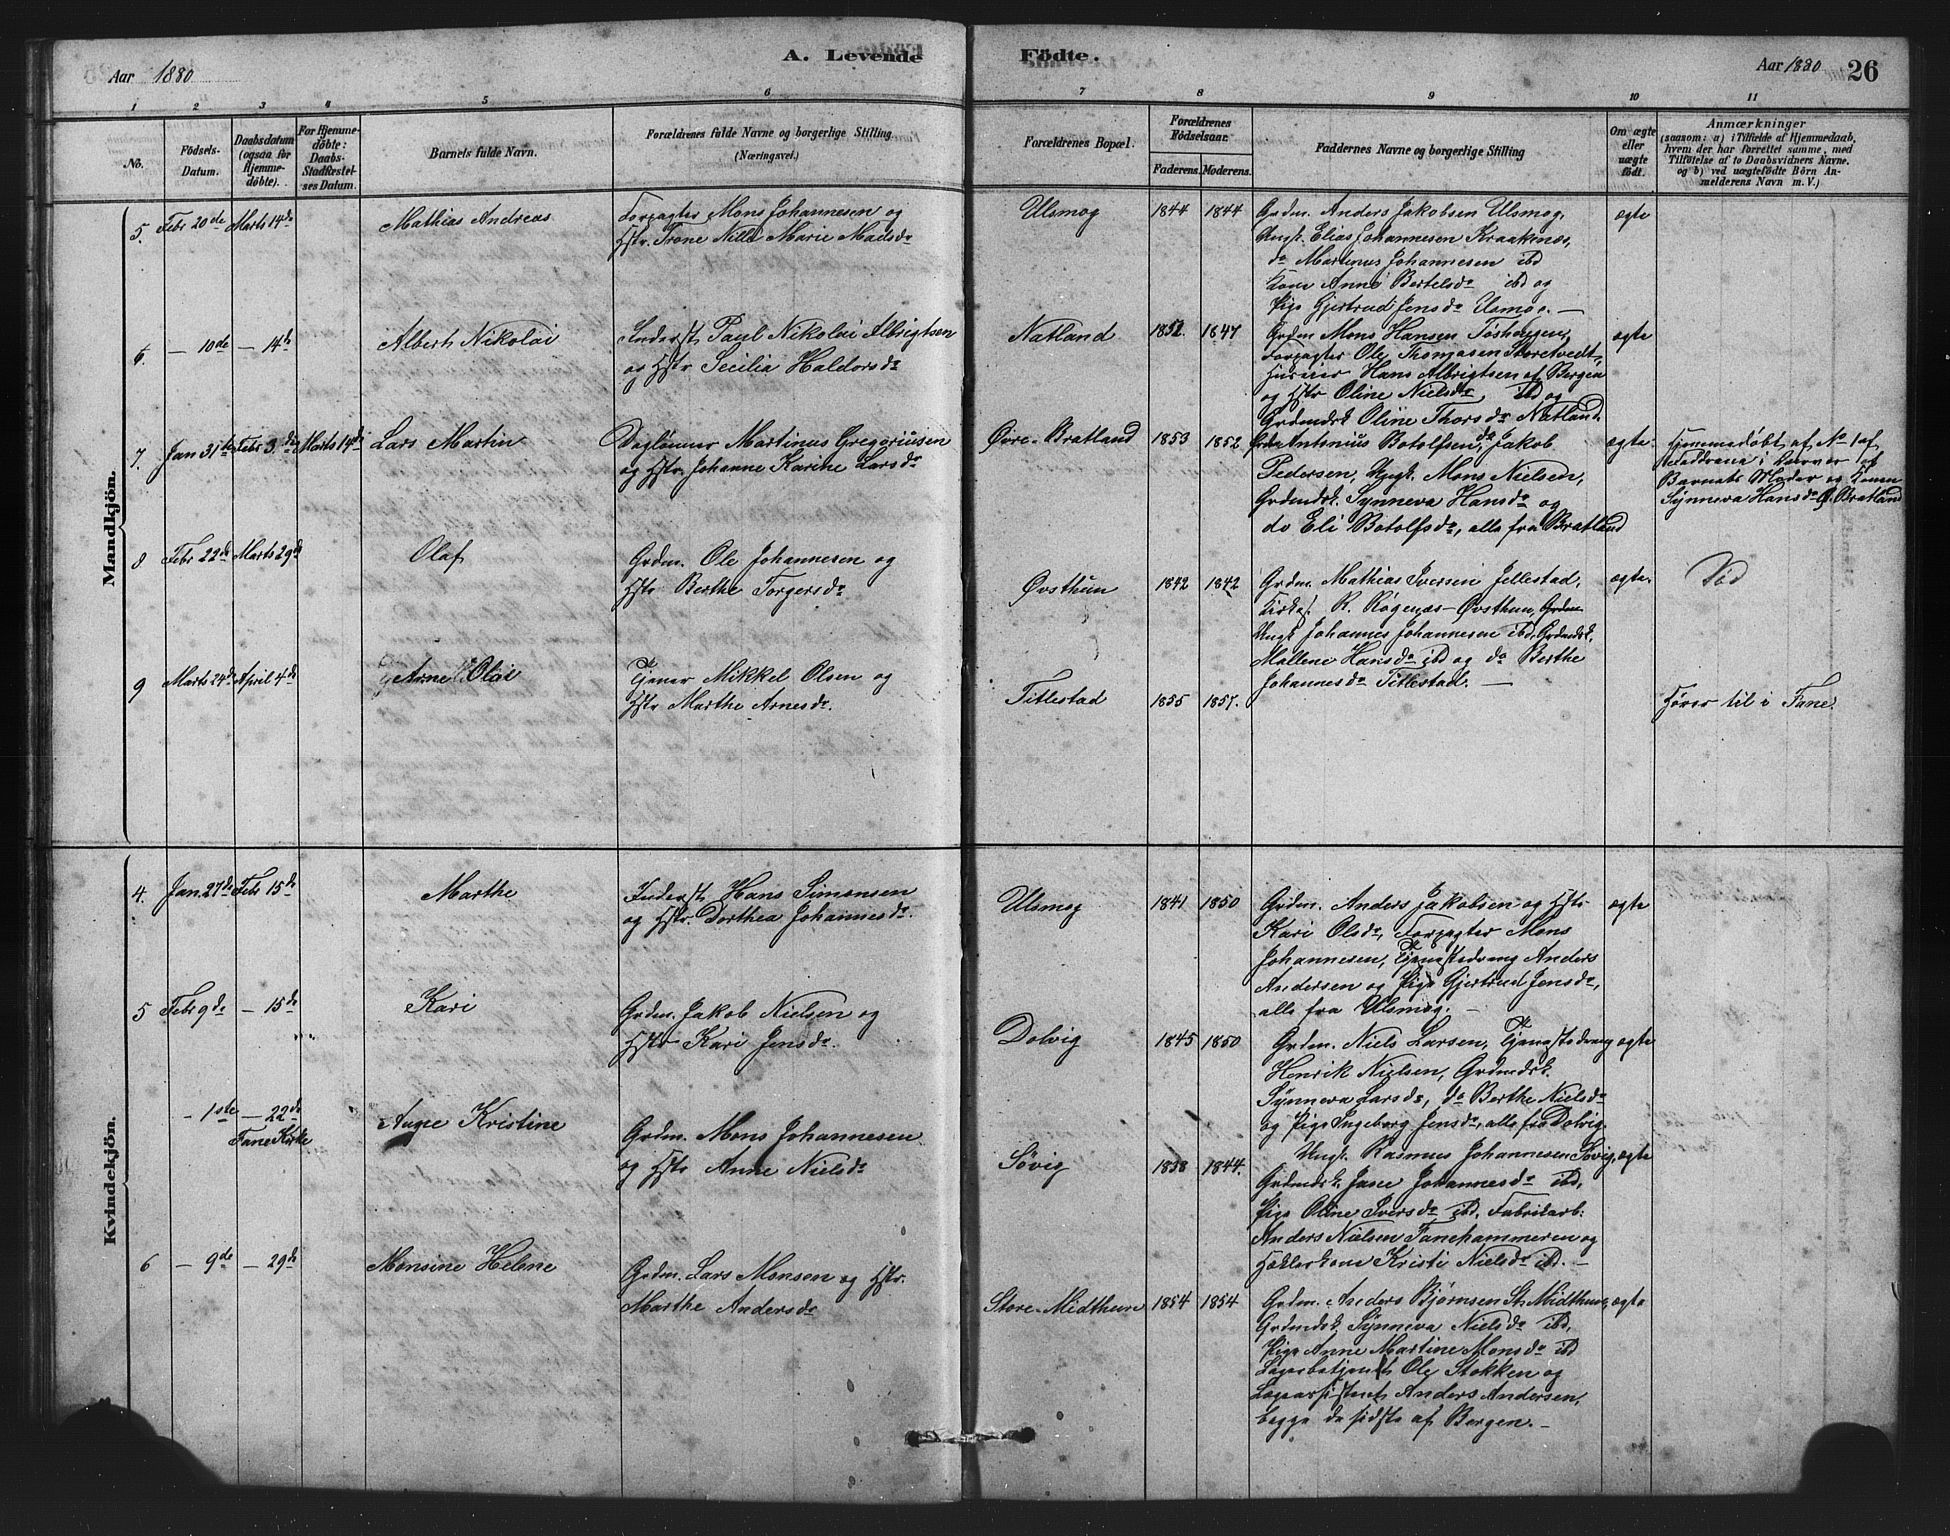 A. Levende Födte.
Aar 1880
Aar 1880 26
1 2 3 4 5 6 7 8 9 10 11
No.
Födsels-
Datum.
Daabsdatum
(ogsaa for
Hjemme-
döbte).
For Hjemme-
döbte:
Daabs-
Stadfæstel-
ses Datum.
Barnets fulde Navn.
Forældrenes fulde Navne og borgerlige Stilling
(Næringsvei.)
Forældrenes Bopæl.
Forældrenes
Födselsaar.
Faderens. Moderens.
Faddernes Navne og borgerlige Stilling
Om ægte
eller
uægte
födt.
Anmærkninger
(saasom: a) i Tilfælde af Hjemmedaab,
hvem der har forrettet samme, med
Tilföielse af to Daabsvidners Navne.
og b) ved uægtefödte Börn An-
melderens Navn m. V.)
Mandkjön.
5. Febr 20de Marts 14de
Mathias Andreas
Forpagter Mons Johannesen og
Hstr Trone Nille Marie Madsdr
Ulsmog 1844 1844
Grdm. Anders Jakobsen Ulsmog,
Ungk. Elias Johannesen Kraakenæs,
do Martinus Johannesen ibd
Kone Anne Bertelsdr ibd og
Pige Gjertrud Jensdr Ulsmog. —
ægte
6. — 10de — 14de
Albert Nikolai
Inderst Paul Nikolai Albrigtsen
og Hstr Secilia Haldorsdr
Natland 1852. 1847
Grdm Mons Hansen Tøshaugen,
Forpagter Ole Thomasen Storetvedt,
Huseier Hans Albrigtsen af Bergen
og Hstr Oline Nielsdr ibd og
Grdmdsk Oline Thorsdr Natland.
ægte
7. Jan 31te Febr 3de Marts 14de
Lars Martin
Daglønner Martinus Gregoriusen
og Hstr. Johanne Karine Larsdr
Øvre-Bratland 1853 1852
Grdm Antonius Botolfsen, do Jakob
Pedersen, Ungk. Mons Nielsen,
Grdmdsk. Synneva Hansdr og
do Eli Botolfsdr, alle fra Bratland
ægte.
Hjemmedøbt af No 1 af
Fadderne i Nærvær af
Barnets Moder og Konen
Synneva Hansdr Ø. Bratland
8 Febr 22de Marts 29de
Olaf
Grdm. Ole Johannesen og
Hstr Berthe Torgersdr
Øvsthun 1842 1842
Grdm. Mathias Iversen Jellestad,
Kirkes. R. Røgenæs-Øvsthun, Grdm
Ungk Johannes Johannesen ibd, Grdmdsk.
Mallene Hansdr ibd og do Berthe
Johannesdr Titlestad. —
ægte.
9 Marts 24de April 4de
Arne Olai
Tjener Mikkel Olsen og
Hstr Marthe Arnesdr.
Titlestad 1855 1857.
Hører til i Fane.
Kvindekjön.
4. Jan. 27de Febr 15de
Marthe
Inderst Hans Simonsen
og Hstr. Dorthea Johannesdr.
Ulsmog 1841 1850
Grdm. Anders Jakobsen og Hstr
Kari Olsdr, Forpagter Mons
Johannesen, Tjenestedreng Anders
Andersen og Pige Gjertrud Jensdr,
alle fra Ulsmog. —
ægte
5 Febr 9de — 15de
Kari
Grdm. Jakob Nielsen og
Hstr Kari Jensdr.
Dolvig 1845 1850
Grdm. Niels Larsen, Tjenestedreng
Henrik Nielsen, Grdmdsk.
Synneva Larsdr, do Berthe Nielsdr
og Pige Ingeborg Jensdr, alle fra Dolvig.
ægte
- 1ste — 22de
Fane Kirke
Aagie Kristine
Grdm. Mons Johannesen
og Hstr Anne Nielsdr
Søvig 1838 1844.
Ungk. Rasmus Johannesen Søvig,
Grdmdsk. Jane Johannesdr ibd,
Pige Oline Iversdr ibd, Fabrikarb.
Anders Nielsen Fanehammeren og
Høkkerkone Kristi Nielsdr ibd. —
ægte
6 — 9de — 29de
Monsine Helene
Grdm. Lars Monsen og Hstr.
Marthe Andersdr
Store-Midthun 1854 1854
Grdm. Anders Bjørnsen St. Midthun,
Grdmdsk Synneva Nielsdr ibd,
Pige Anne Martine Monsdr ibd
Lagerbetjent Ole Stokken og
Anders Andersen,
begge de sidste af Bergen. —
ægte